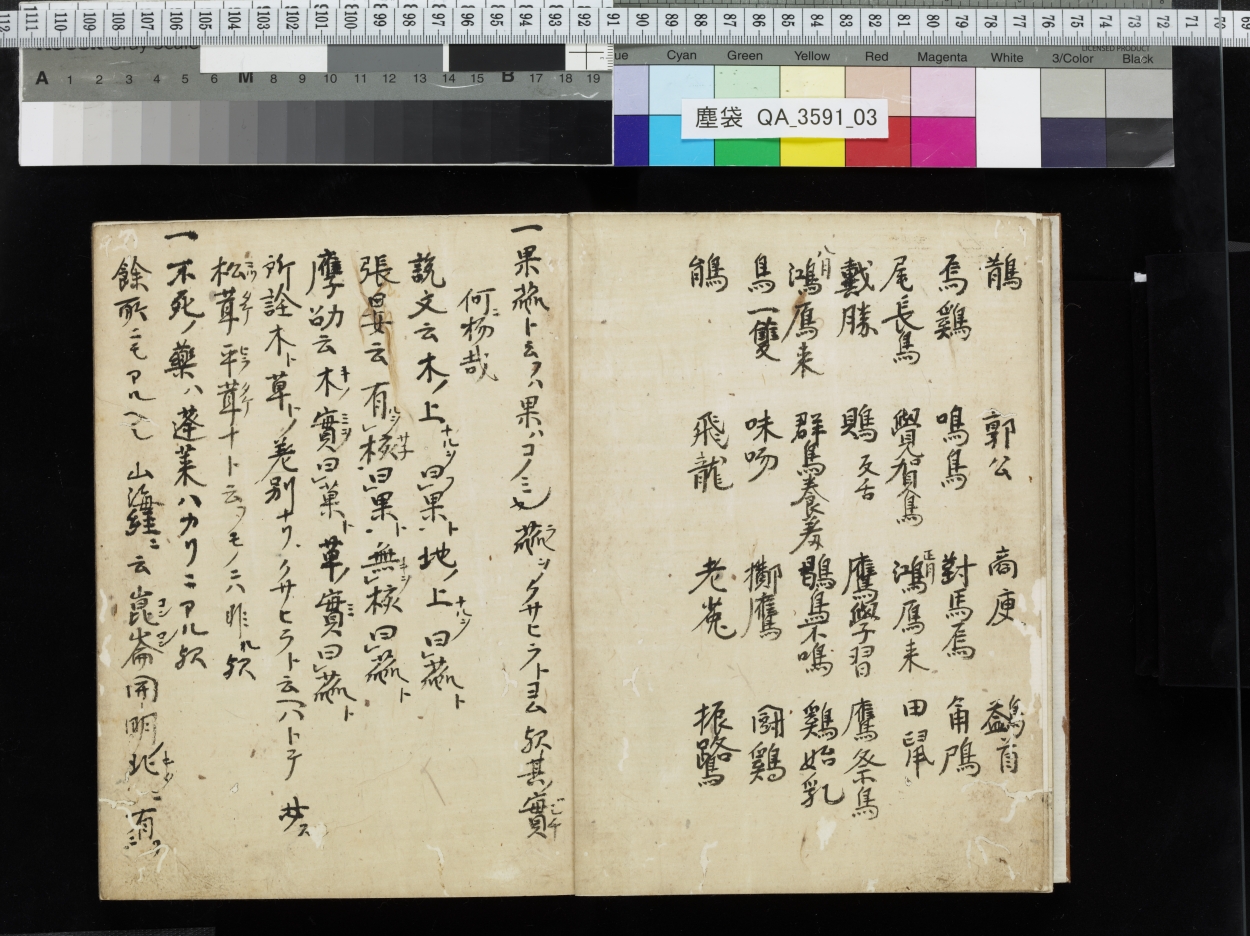 塵袋 QA_3591_03
Cyan Green Yellow Red Magenta White 3/Color Black
LICENSED PRODUCT
A 1 2 3 4 5 6 M 8 9 10 11 12 13 14 15 B 17 18 19
鵲 郭公 商庚 鷁首
烏鷄 鳴鳥 對馬烏 角鴟
尾長鳥 學賀鳥 正月鴻鴈来 田䑕
戴勝 鵙反舌 鷹學習 鷹祭鳥
八月鴻鴈来 群鳥養羞 鶡鳥不鳴 鷄始乳
鳥一雙 味吻 擲鷹 闘鷄
鴿 飛龍 老菟 振鷺
一果蓏ト云フハ果ハコノミ也蓏ヲクサヒラトヨム歟其實
何物哉
説文云木ノ上ナルヲ曰果ト地ノ上ナルヲ曰蓏ト
張晏云有核曰果ト無核曰蓏ト
應劭云木ノ實曰菓ト草ノ實曰蓏ト
所詮木ト草トノ差別ナリクサヒラト云ヘハトテ
松茸平茸ナト云フモノニハ非ル歟
一不死ノ藥ハ蓬莱ハカリニアル歟
餘所ニモアルヘシ山海經ニ云崑崙開明北ニ有